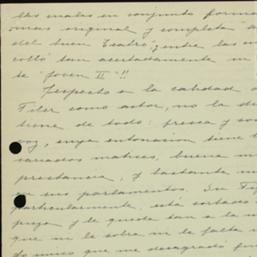 las malas en conjunto forma
omas original y completa
del buen Teatro", entre las
coltó tan acertadamente en
te "Joven II"!!
Respecto a la calidad
Fiter como actor, no la
tiene de todo: fresca y
voz, cuya entonación tiene
variados matices, buena
prestancia, y bastante
en sus parlamentos. Su
particularmente, está cortada
y le queda tan a la
que ni le sobra ni le falta
do único que me desagradó